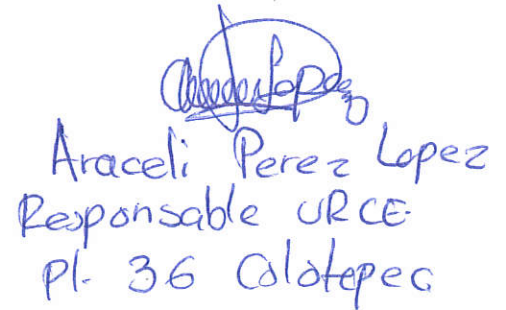 Araceli Perez Lopez
Responsable URCE.
Pl. 36 Colotepec